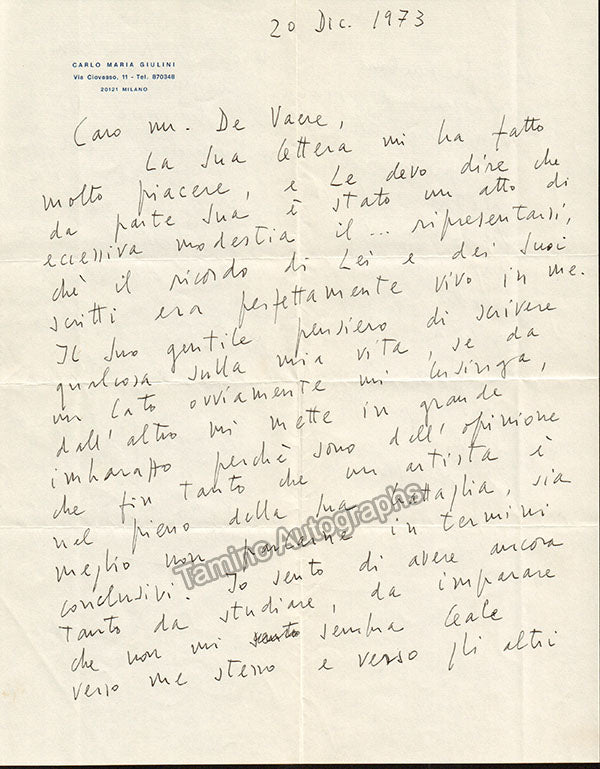 20 Dic. 1973
CARLO MARIA GIULINI
Via Ciovasso, 11 - Tel. 870348
20121 MILANO
Caro mr. De Vaere,
La Sua lettera mi ha fatto
molto piacere, e Le devo dire che
da parte Sua è stato un atto di
eccessiva modestia il ... ripresentarsi,
chè il ricordo di Lei e dei Suoi
scritti era perfettamente vivo in me.
Il Suo gentile pensiero di scrivere
qualcosa sulla mia vita, se da
un lato ovviamente mi lusinga,
dall'altro mi mette in grande
imbarazzo perchè sono dell'opinione
che fin tanto che un artista è
nel pieno della sua battaglia, sia
meglio non parlarne in termini
conclusivi. Io sento di avere ancora
tanto da studiare, da imparare
che non mi sento sembra leale
verso me stesso e verso gli altri
Tamino Autographs